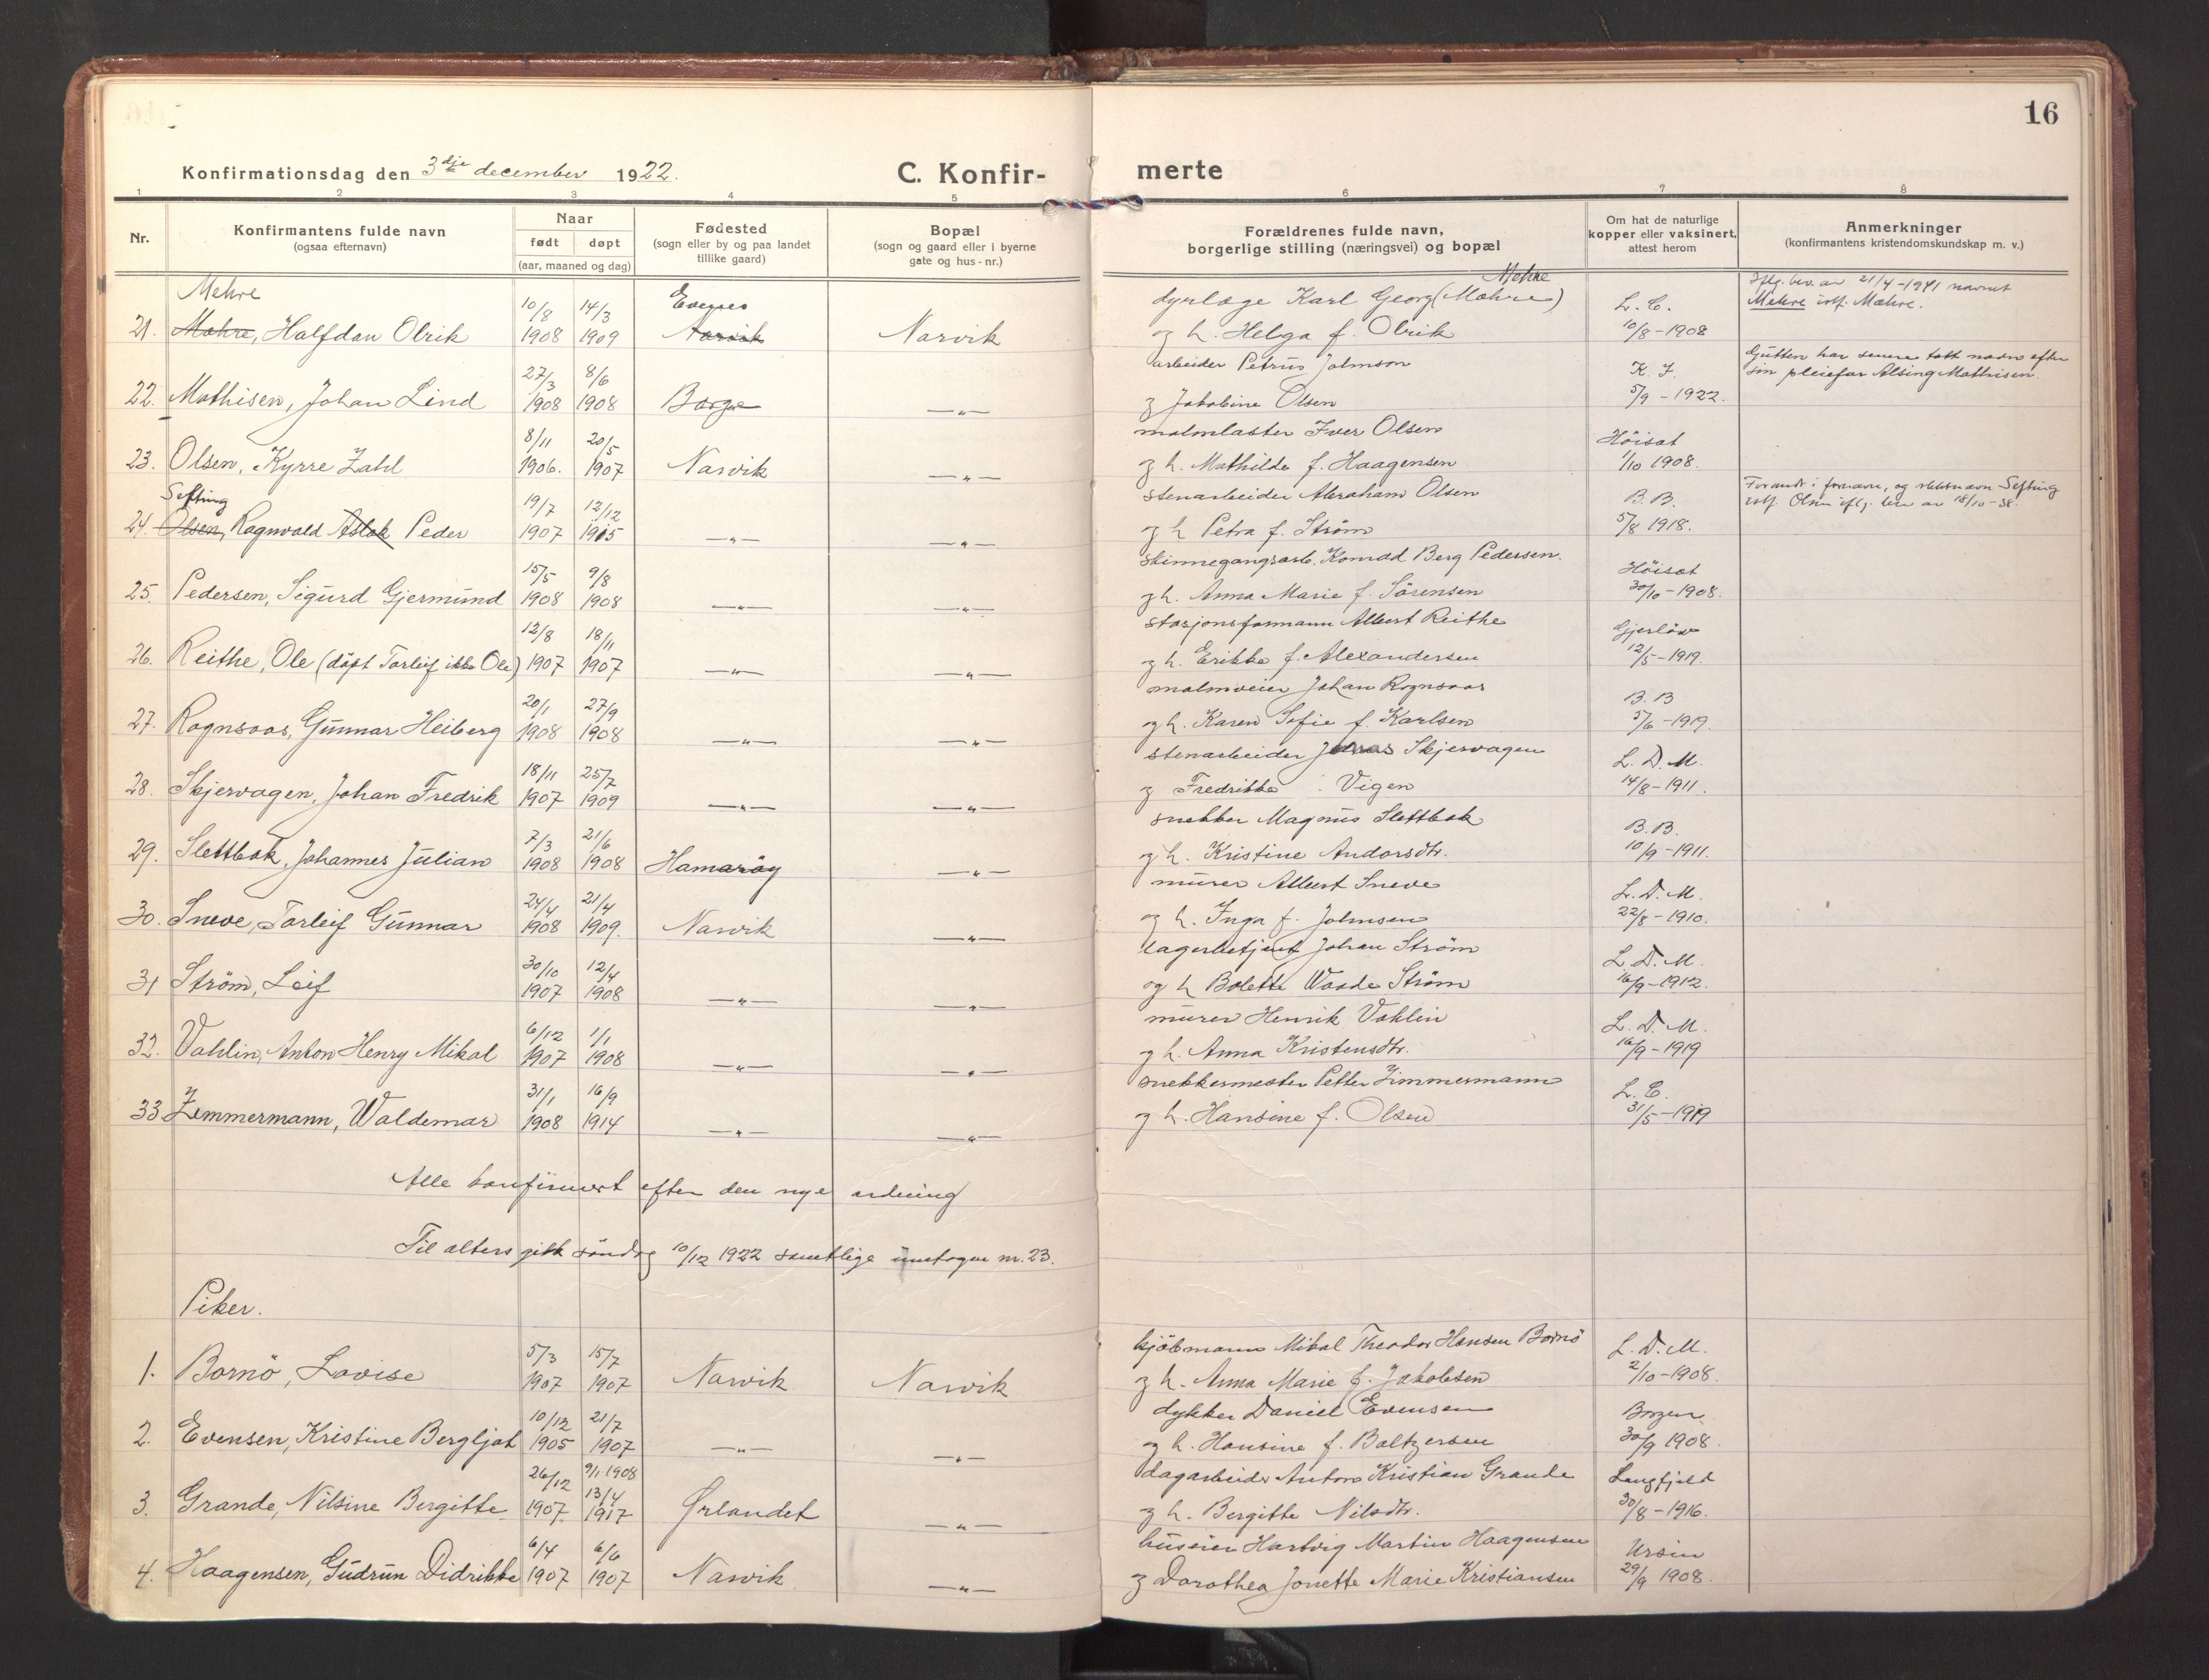 16
Konfirmationsdag den 3dje december 1922.
C. Konfir-
merte
1 2 3 4 5 6 7 8
Nr.
Konfirmantens fulde navn
(ogsaa efternavn)
Naar
født døpt
(aar, maaned og dag)
Fødested
(sogn eller by og paa landet
tillike gaard)
Bopæl
(sogn og gaard eller i byerne
gate og hus-nr.)
Forældrenes fulde navn,
borgerlige stilling (næringsvei) og bopæl
Om hat de naturlige
kopper eller vaksinert,
attest herom
Anmerkninger
(konfirmantens kristendomskundskap m. v.)
Mehre 10/8 14/3 Evenes dyrlæge Karl Georg (Mæhre) Mehre L. C. Iflg. bev. av 21/4-1941 navnet
21. Mæhre, Halfdan Olrik 1908 1909 Narvik Narvik og h. Helga f. Olrik 10/8-1908 Mehre istf. Mæhre.
27/3 8/6 arbeider Petrus Johnson K. J. Gutten har senere tatt navn efter
22. Mathisen, Johan Lind 1908 1908 Borge —"— og Jakobine Olsen 5/9-1922. sin pleiefar Alsing Mathisen.
8/11 20/5 malmlaster Iver Olsen Höisat
23. Olsen, Kyrre Zahl 1906. 1907 Narvik —"— og h. Mathilde f. Haagensen 1/10 1908.
Sefting 19/7 12/12 stenarbeider Abraham Olsen B. B. Forandr. i fornavn, og slektsnavn Sefting
24. Olsen, Ragnvald Aslak Peder 1907 1915 —"— —"— og h Petra f. Ström 5/8 1918. istf. Olsen iflg. bev av 18/10-38.
15/5 9/8 skinnegangsarb. Konrad Berg Pedersen. Höisat
25. Pedersen, Sigurd Gjermund 1908 1908 —"— —"— og h. Anna Marie f. Sörensen 30/10-1908.
12/8 18/11 stasjonsformann Albert Reithe Gjerlöw
26. Reithe, Ole (döpt Torleif ikke Ole) 1907 1907 —"— —"— og h. Erikke f. Alexandersen 12/5-1919.
20/1 27/9 malmveier Johan Rognsaas B. B
27. Rognsaas, Gunnar Heiberg 1908 1908 —"— —"— og h. Karen Sofie f. Karlsen 5/6-1919.
18/11 25/7 stenarbeider Jonas Skjervagen L. D. M.
28. Skjervagen, Johan Fredrik 1907 1909 —"— —"— og Fredrikke Vigen 14/8-1911.
7/3 21/6 snekker Magnus Slettbak B. B.
29. Slettbak, Johannes Julian 1908 1908 Hamaröy —"— og h. Kristine Andorsdtr. 10/9-1911.
24/4 21/4 murer Albert Sneve L. D. M.
30. Sneve, Torleif Gunnar 1908 1909. Narvik —"— og h. Inga f. Johnsen 22/8-1910.
30/10 12/4 lagerbetjent Johan Ström L. D. M.
31 Ström, Leif 1907 1908 —"— —"— og h Bolette Waade Ström 16/9-1912.
6/12 1/1 murer Henrik Vahlin L. D. M.
32. Vahlin, Anton Henry Mikal 1907 1908 —"— —"— og h. Anna Kristensdtr. 16/9-1919
31/1 16/9 snekkermester Petter Zimmermann L. C.
33 Zimmermann, Waldemar 1908 1914 —"— —"— og h. Hansine f. Olsen 31/5-1919
Alle konfirmert efter den nye ordning
Til alters gikk söndag 10/12 1922 samtlige unntagen nr. 23.
Piker.
5/3 15/7 kjöbmann Mikal Theodor Hansen Bornö L. D. M.
1. Bornö, Lovise 1907 1907 Narvik Narvik og h. Anna Marie f. Jakobsen 2/10-1908.
10/12 21/7 dykker Daniel Evensen Borgen
2. Evensen, Kristine Bergljot 1905 1907 —"— —"— og h. Hansine f. Baltzersen 30/9 1908.
26/12 9/1 1908 13/4 dagarbeider Anton Kristian Grande Langfjeld
3. Grande, Nilsine Bergitte 1907 1917 Ørlandet —"— og h. Bergitte Nilsdtr. 30/8-1916.
6/4 6/6 huseier Hartvig Martin Haagensen Ursin
4. Haagensen, Gudrun Didrikke 1907 1907 Narvik —"— og Dorothea Jonette Marie Kristiansen 29/9 1908.